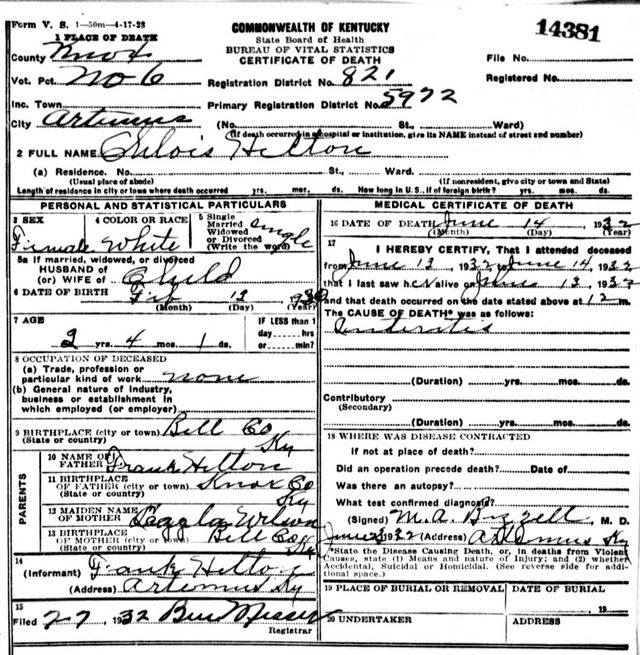 Form V. S. 1—50m—4-17-28
COMMONWEALTH OF KENTUCKY
State Board of Health
BUREAU OF VITAL STATISTICS
CERTIFICATE OF DEATH
14381
1 PLACE OF DEATH
County Knox
File No.
Vot. Pct. No 6
Registration District No. 821
Registered No.
Inc. Town
Primary Registration District No. 5972
City Artemus (No. St., Ward)
(If death occurred in a hospital or institution, give its NAME instead of street and number)
2 FULL NAME Hilton
(a) Residence. No. St., Ward.
(Usual place of abode) (If nonresident, give city or town and State)
Length of residence in city or town where death occurred yrs. mos. ds. How long in U. S., if of foreign birth? yrs. mos. ds.
PERSONAL AND STATISTICAL PARTICULARS
3 SEX
Female
4 COLOR OR RACE
White
5 Single
Married
Widowed
or Divorced
(Write the word)
Single
5a If married, widowed, or divorced
HUSBAND of
(or) WIFE of Child
6 DATE OF BIRTH Feb 13 1930
(Month) (Day) (Year)
7 AGE
2 yrs. 4 mos. 1 ds.
IF LESS than 1
day hrs
or min?
8 OCCUPATION OF DECEASED
(a) Trade, profession or
particular kind of work none
(b) General nature of industry,
business or establishment in
which employed (or employer)
9 BIRTHPLACE (city or town) Bell Co
(State or country) Ky
PARENTS
10 NAME OF
FATHER Frank Hilton
11 BIRTHPLACE
OF FATHER (city or town) Knox Co
(State or country) Ky
12 MAIDEN NAME
OF MOTHER Wilson
13 BIRTHPLACE
OF MOTHER (city or town) Bell Co
(State or country) Ky
14
(Informant) Frank Hilton
(Address) Artemus Ky
15
Filed 7-7 1932
Registrar
MEDICAL CERTIFICATE OF DEATH
16 DATE OF DEATH June 14 1932
(Month) (Day) (Year)
17
I HEREBY CERTIFY, That I attended deceased
from June 13 1932 to June 14 1932
that I last saw h er alive on June 13, 1932
and that death occurred on the date stated above at 12 m.
The CAUSE OF DEATH* was as follows:
(Duration) yrs. mos. ds.
Contributory
(Secondary)
(Duration) yrs. mos. ds.
18 WHERE WAS DISEASE CONTRACTED
If not at place of death?
Did an operation precede death? Date of
Was there an autopsy?
What test confirmed diagnosis?
(Signed) M. A. Bizzell, M. D.
June 1932 (Address) Artemus Ky
*State the Disease Causing Death, or, in deaths from Violent
Causes, state (1) Means and nature of Injury; and (2) whether
Accidental, Suicidal or Homicidal. (See reverse side for addi-
tional space.)
19 PLACE OF BURIAL OR REMOVAL
DATE OF BURIAL
19
20 UNDERTAKER
ADDRESS